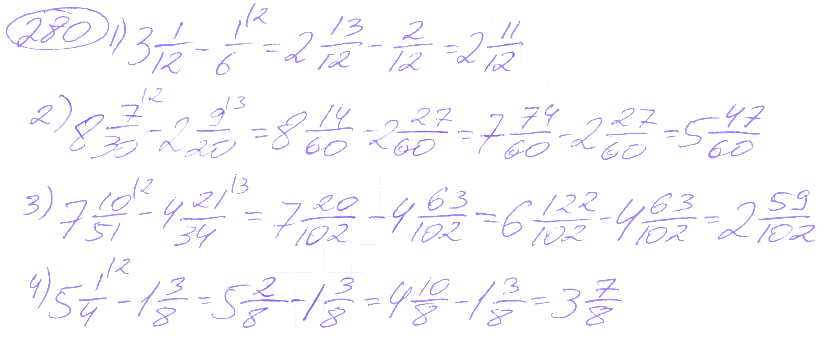 280 1) 3 1/12 - 1/6 |2 = 2 13/12 - 2/12 = 2 11/12
2) 8 7/30 |2 - 2 9/20 |3 = 8 14/60 - 2 27/60 = 7 74/60 - 2 27/60 = 5 47/60
3) 7 10/51 |2 - 4 21/34 |3 = 7 20/102 - 4 63/102 = 6 122/102 - 4 63/102 = 2 59/102
4) 5 1/4 |2 - 1 3/8 = 5 2/8 - 1 3/8 = 4 10/8 - 1 3/8 = 3 7/8